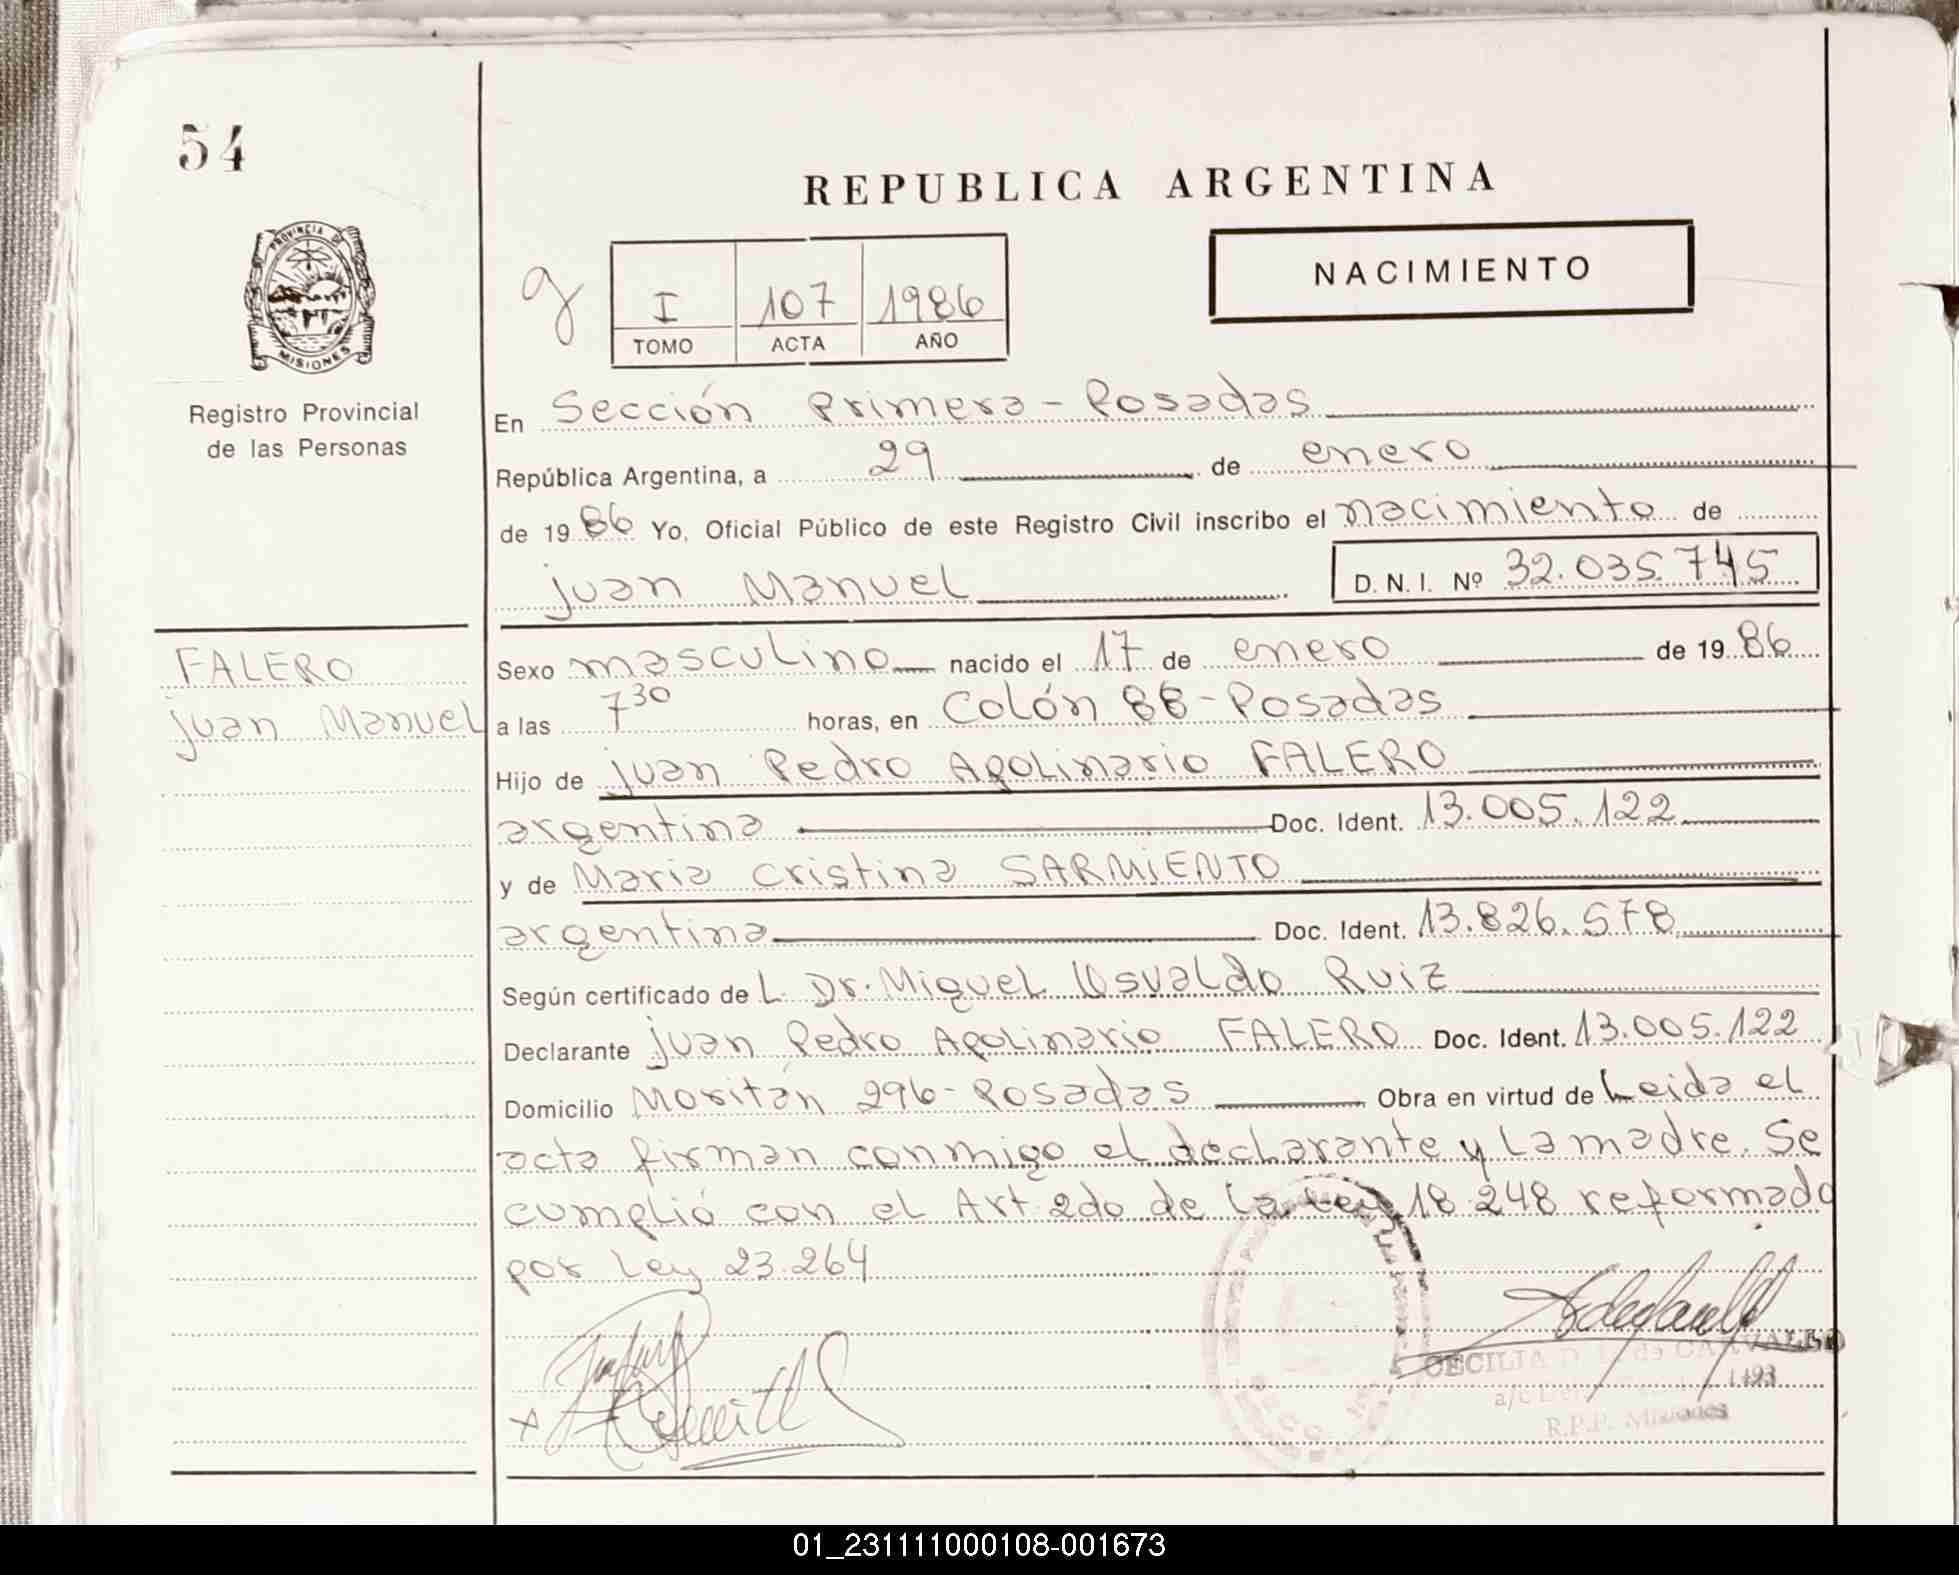 54
REPUBLICA ARGENTINA
PROVINCIA DE
MISIONES
Registro Provincial
de las Personas
g
I 107 1986
TOMO ACTA AÑO
NACIMIENTO
En Sección Primera - Posadas
República Argentina, a 29 de enero
de 1986 Yo, Oficial Público de este Registro Civil inscribo el nacimiento de
juan Manuel D. N. I. Nº 32.035.745
FALERO
juan Manuel
Sexo masculino nacido el 17 de enero de 1986
a las 7 30 horas, en Colón 88 - Posadas
Hijo de juan Pedro Apolinario FALERO
argentina Doc. Ident. 13.005.122
y de Maria Cristina SARMIENTO
argentina Doc. Ident. 13.826.578
Según certificado de L. Dr. Miguel Osvaldo Ruiz
Declarante juan Pedro Apolinario FALERO Doc. Ident. 13.005.122
Domicilio Moritán 296 - Posadas Obra en virtud de Leida el
acta firman conmigo el declarante y la madre. Se
cumplió con el Art. 2do de la Ley 18.248 reformado
por Ley 23.264
CECILIA de CARVALLO
a/c
R.P.P. Misiones
01_231111000108-001673